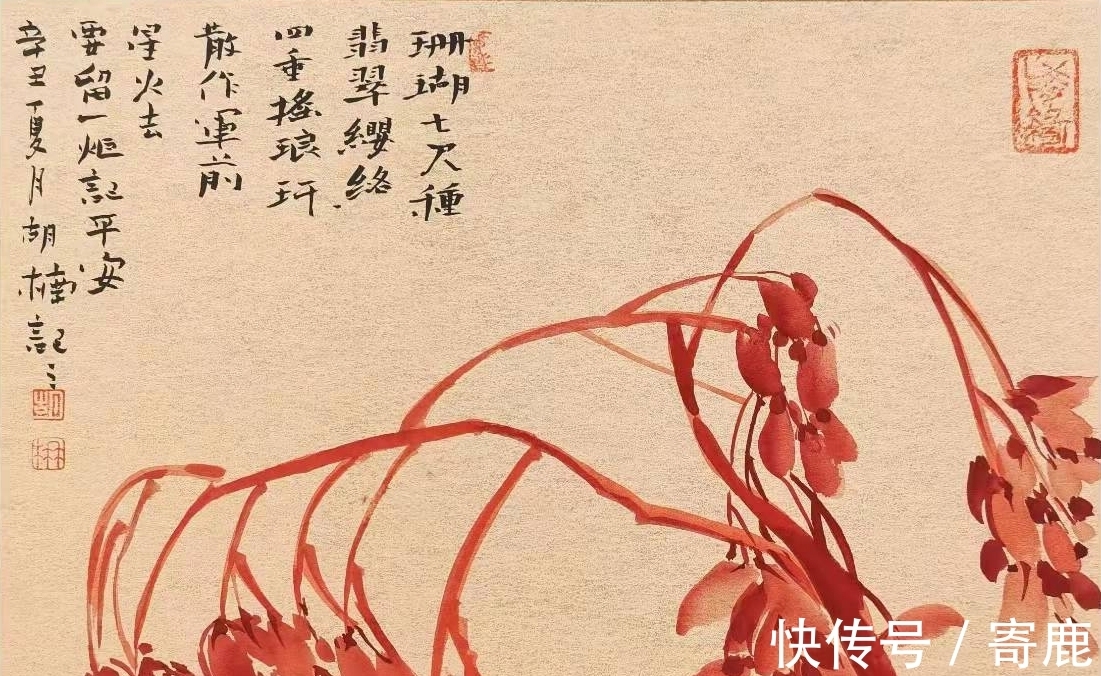 珊瑚七尺種
翡翠纓絡
四重搖琅玕
散作軍前
星火去
要留一炬記平安
辛丑夏月胡楠記之
快传号 / 寄鹿